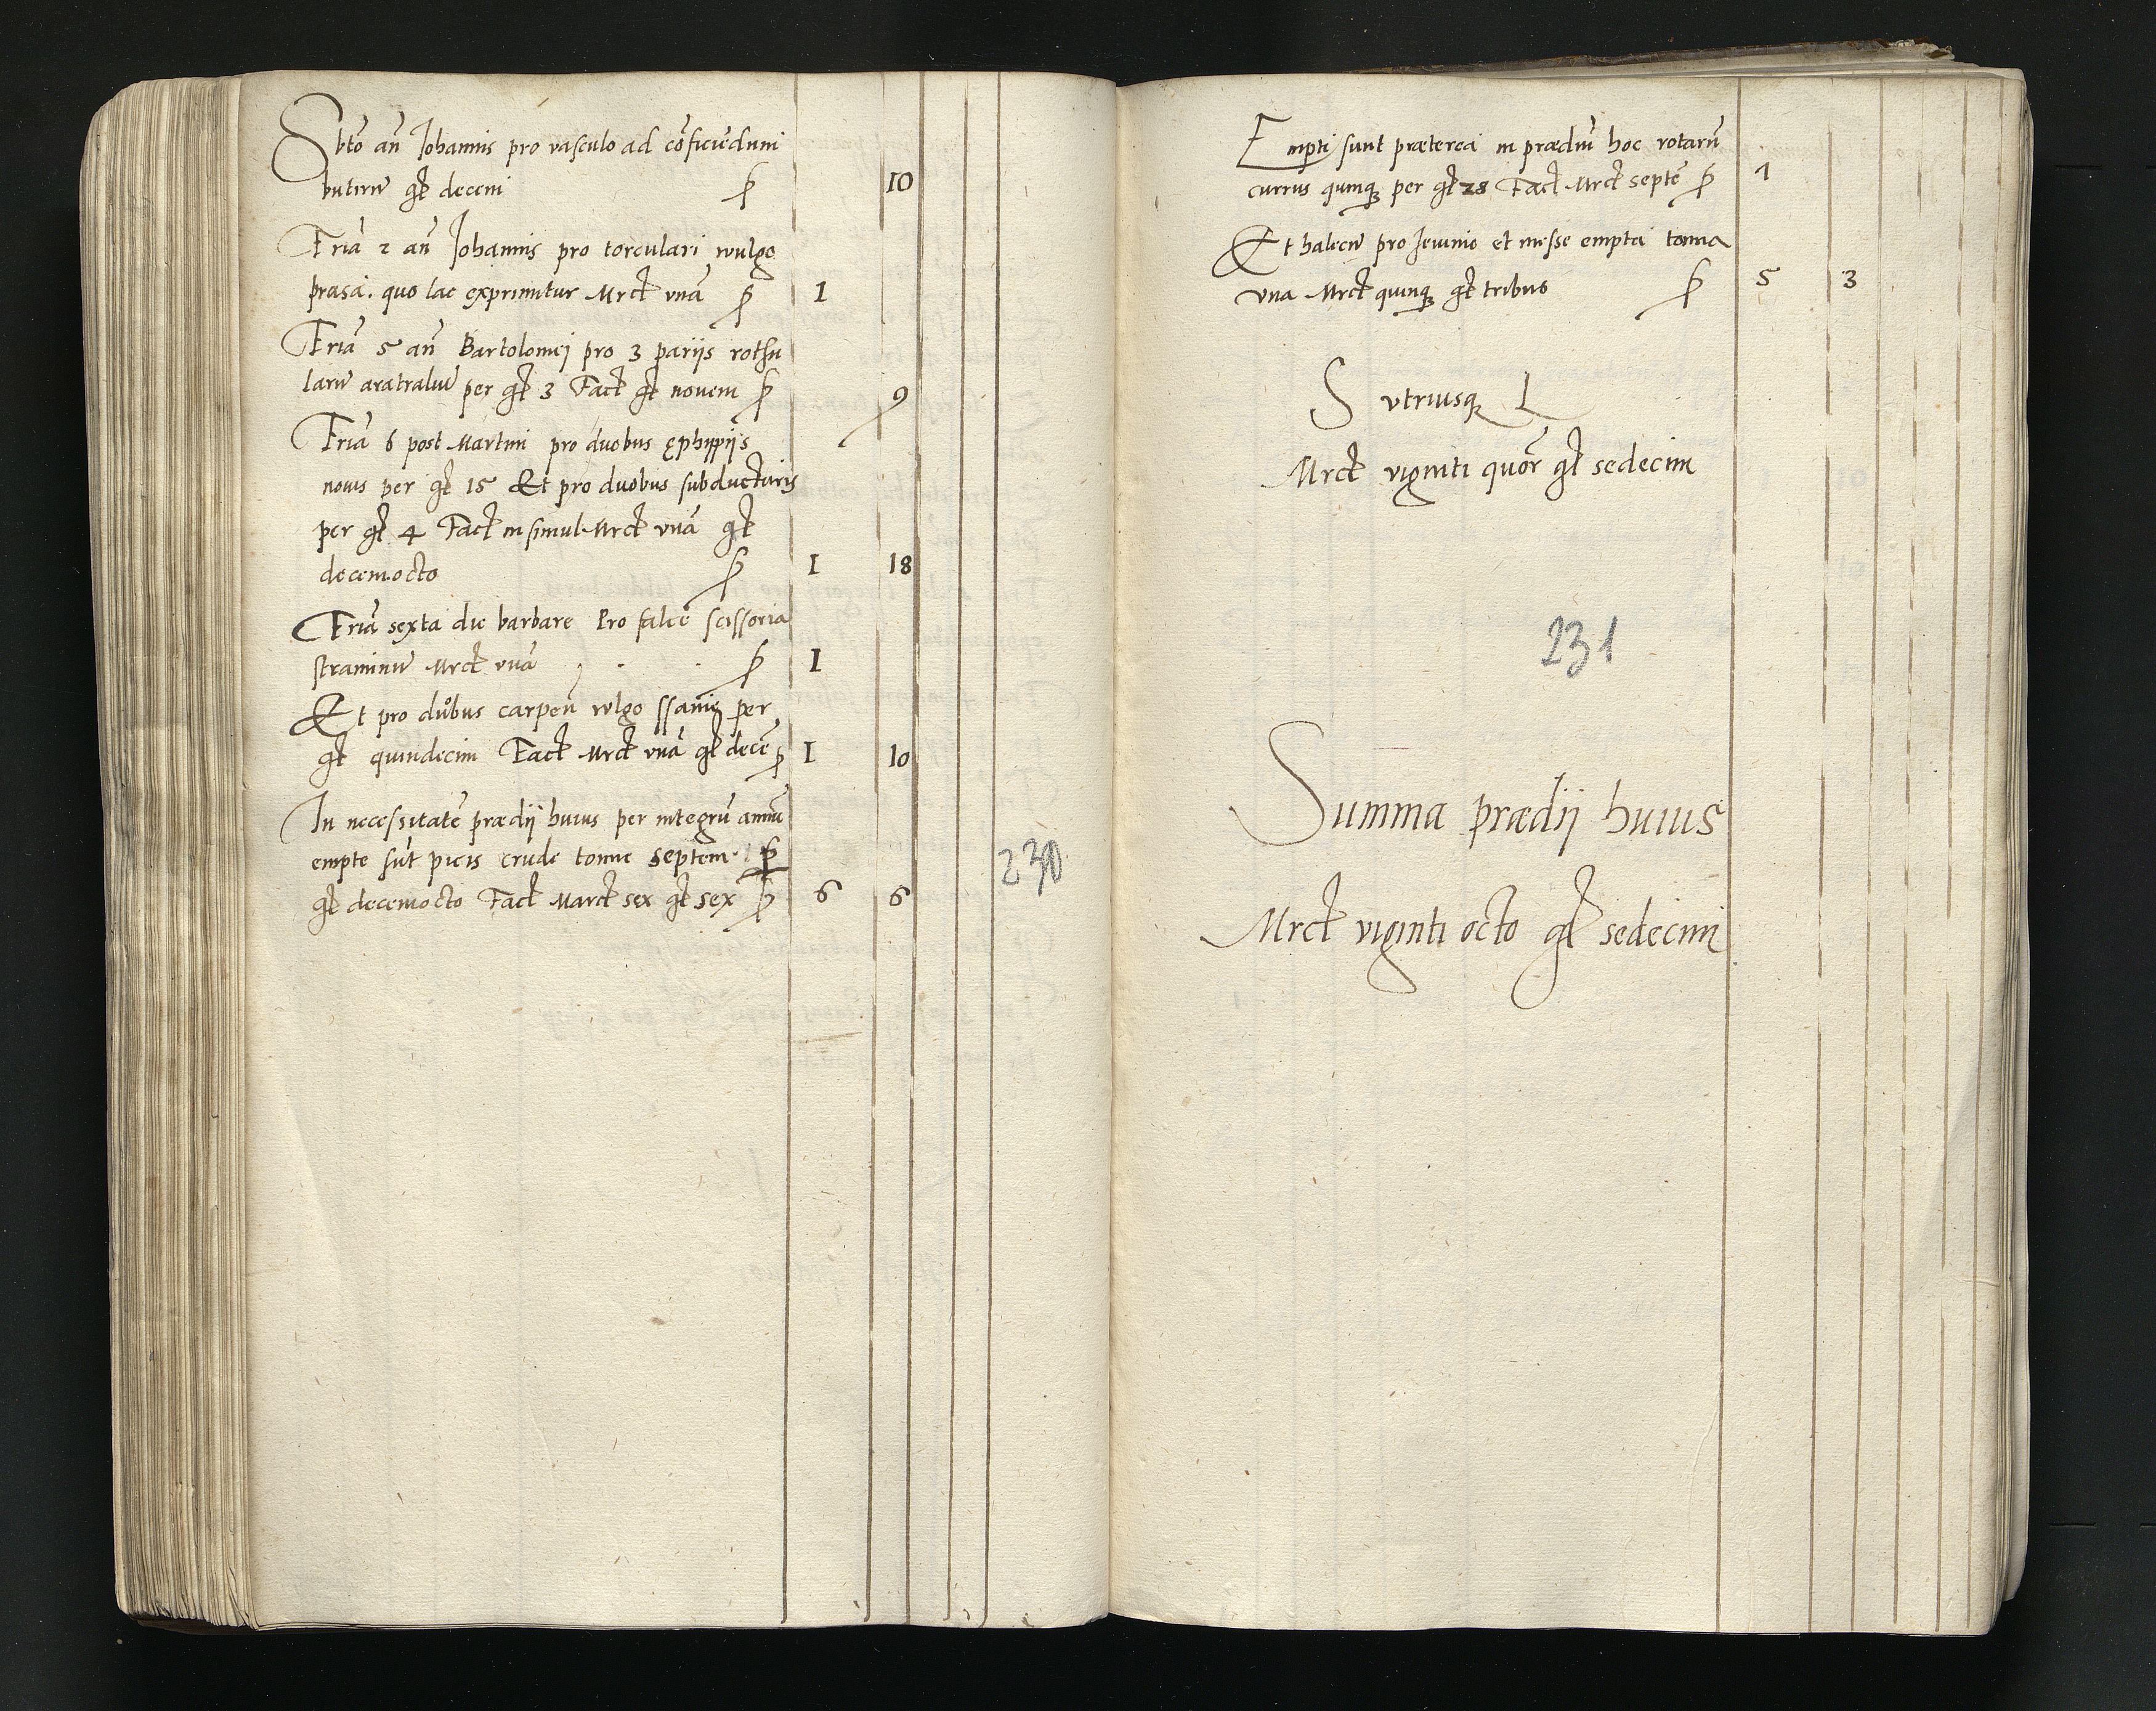 Sbto añ Iohannis pro vasculo ad cõficiẽdum
butirũ gł decem ꝑ 10
Friã 2 añ Iohannis pro torculari wulgo
prasa. quo lac exprimitur Mrcł vnã ꝑ I
Friã 5 añ Bartolomej pro 3 parijs rothu
larũ aratraliũ per gł 3 Facł gł nouem ꝑ 9
Friã 6 post Martini pro duobus ęphippijs
nouis per gł 15 Et pro duobus subductaris
per gł 4 Facł in simul Mrcł vnã gł
decemocto ꝑ I 18
Friã sexta die barbare Pro falce scissoria
straminũ Mrcł vnã ꝑ I
Et pro duobus carpeñ wlgo ssanie per
gł quindecim Facł Mrcł vnã gł decẽ ꝑ I 10
In necessitatẽ prædij huius per integrũ annũ
empte sũt picis crude tonne septem ꝑ
gł decemocto Facł Marcł sex gł sex ꝑ 6 6
230
Empti sunt præterea in prædiũ hoc rotarũ
currus quinqꝫ per gł 28 Facł Mrcł septẽ ꝑ 7
Et halecũ pro Ieiunio et messe empta tonna
vna Mrcł quinqꝫ gł tribus ꝑ 5 3
S vtriusqꝫ L
Mrcł viginti quor gł sedecim
231
Summa prædij huius
Mrcł viginti octo gł sedecim